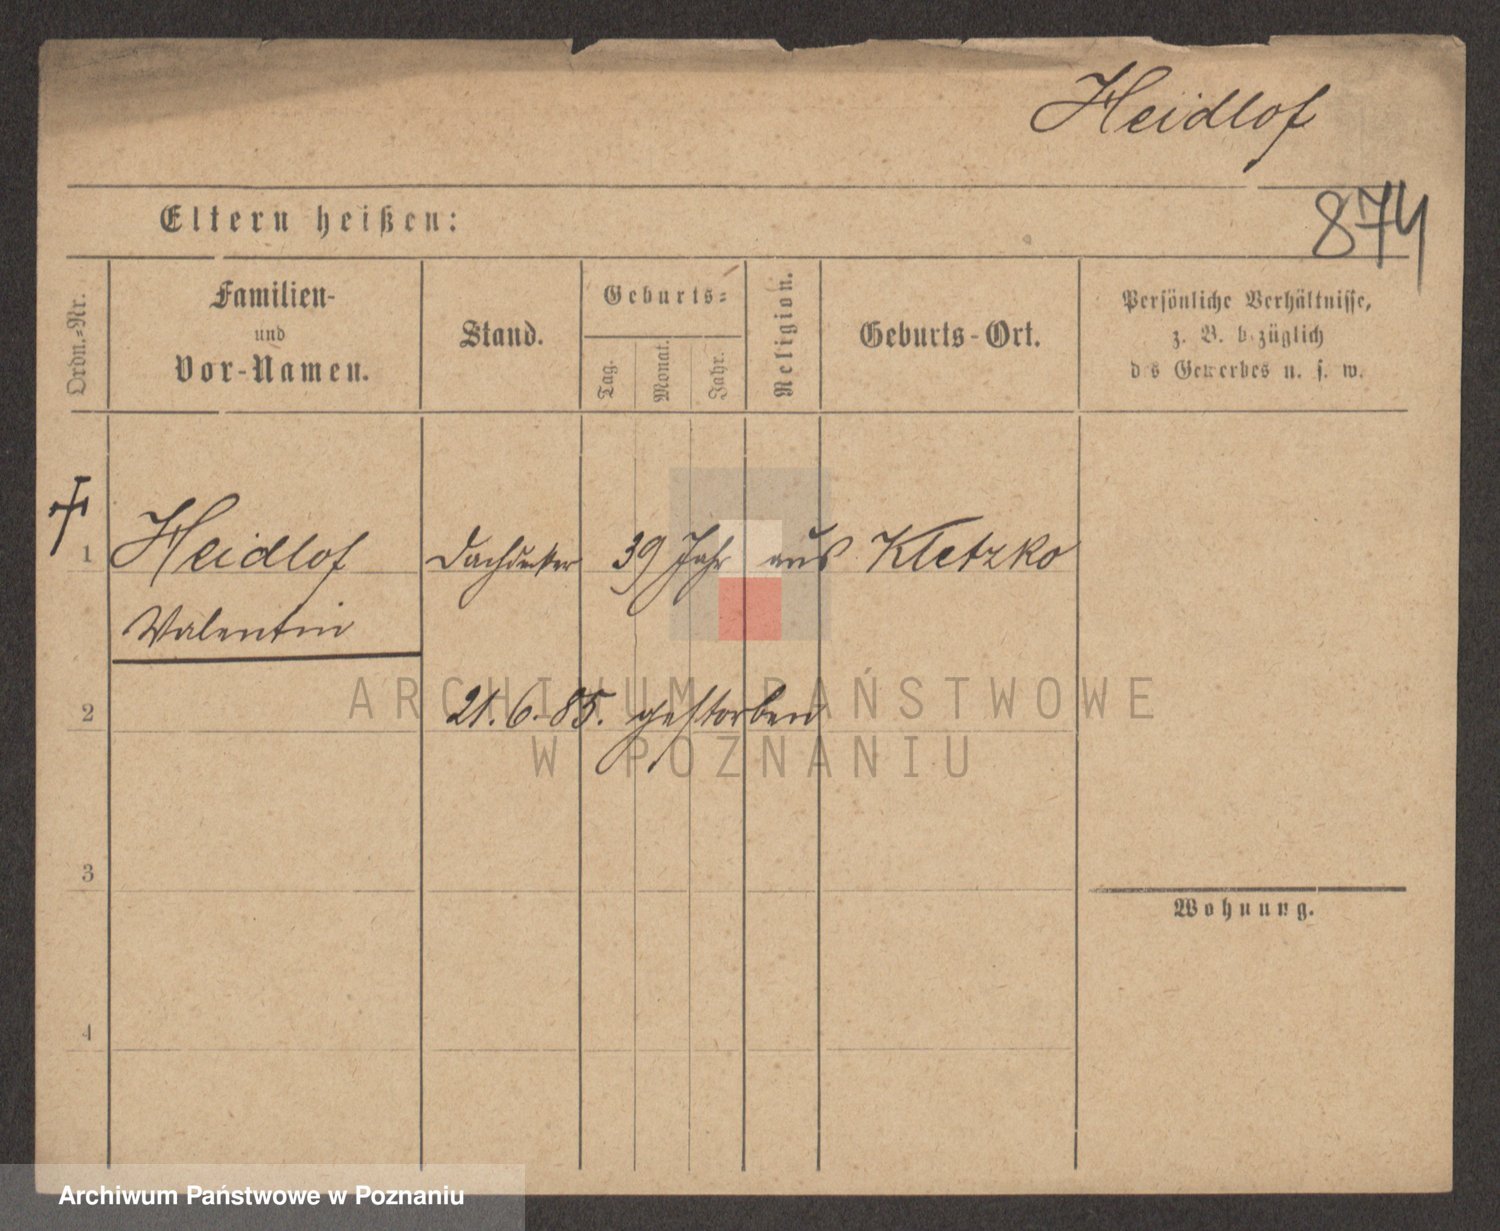 Heidlof
874
Eltern heißen:
Ordn.-Nr.
Familien-
und
Vor-Namen.
Stand.
Geburts-
Tag.
Monat.
Jahr.
Religion.
Geburts-Ort.
Persönliche Verhältnisse,
z. B. bezüglich
des Gewerbes u. s. w.
1 Heidlof Dachdecker 39 Jahr aus Kletzko
Valentin
2 21.6.85. gestorben
3
Wohnung.
4
ARCHIWUM PAŃSTWOWE
W POZNANIU
Archiwum Państwowe w Poznaniu